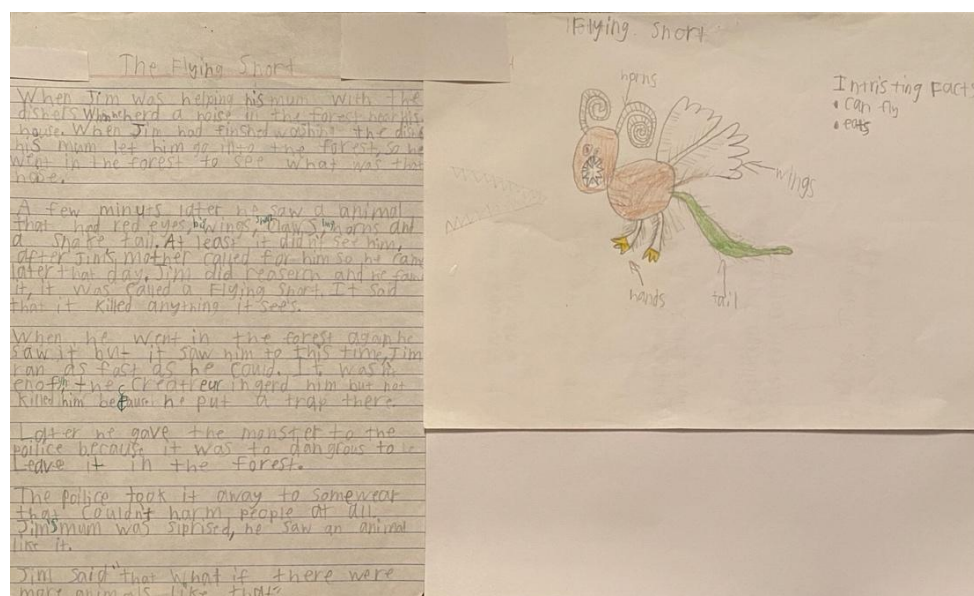 The Flying Snort
When Jim was helping his mum with the
dishers herd a noise in the forest near his
house. When Jim had finished washing the dish
his mum let him go into the forest, so he
went in the forest to see what was that
A few minuts later he saw a animal
that had red eyes, big wings, sharp claws, long horns and
a snake tail. At least it didn't see him,
after Jim's mother called for him so he ran
later that day. Jim did reaserch and he
it, it was called a Flying Snort. It sad
that it killed anything it see's.
When he went in the forest again he
saw it but it saw him to this time, Jim
ran as fast as he could. It was
enof, the Creatreur ingerd him but not
killed him because he put a trap there.
Latter he gave the monster to the
pollice because it was to dangrous to
leave it in the forest.
The pollice took it away to somewear
that couldn't harm people at all.
Jim's mum was siprised, he saw an animal
like it.
Jim said "that what if there were
more animals like that"
Flying Snort
horns
Intristing Fact
• can fly
• eats
wings
hands
tail